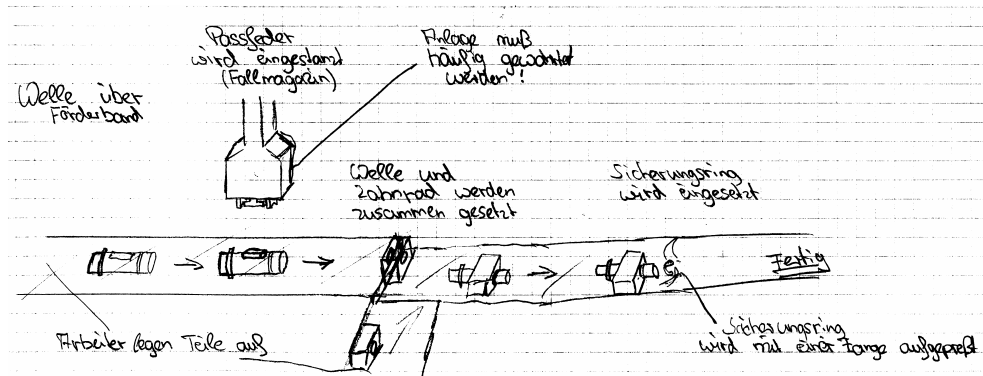 Passfeder
wird eingestanzt
(Fallmagazin)
Anlage muß
häufig gewartet
werden!
Welle über
Förderband
Welle und
Zahnrad werden
zusammen gesetzt
Sicherungsring
wird eingesetzt
Fertig
Arbeiter legen Teile auf
Sicherungsring
wird mit einer Zange aufgepreßt